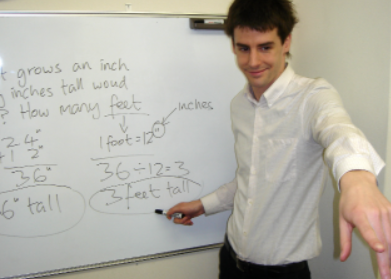 t grows an inch
g inches tall woud
? How many feet
inches
1 foot = 12"
24"
12"
36"
36 ÷ 12 = 3
6" tall
3 feet tall